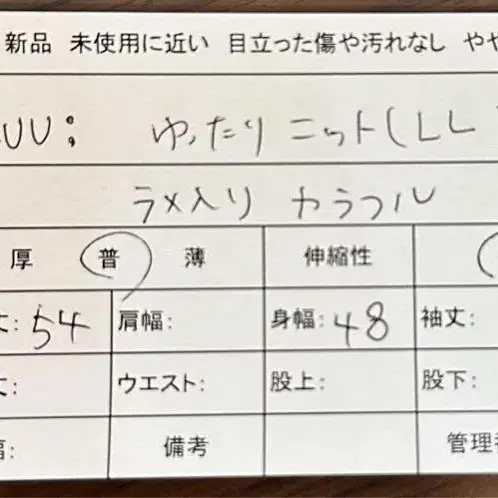 新品 未使用に近い 目立った傷や汚れなし やや
UU: ゆったり ニット(LL
ラメ入り カラフル
厚 普 薄 伸縮性
丈: 54 肩幅: 身幅: 48 袖丈:
丈: ウエスト: 股上: 股下:
幅: 備考 管理番